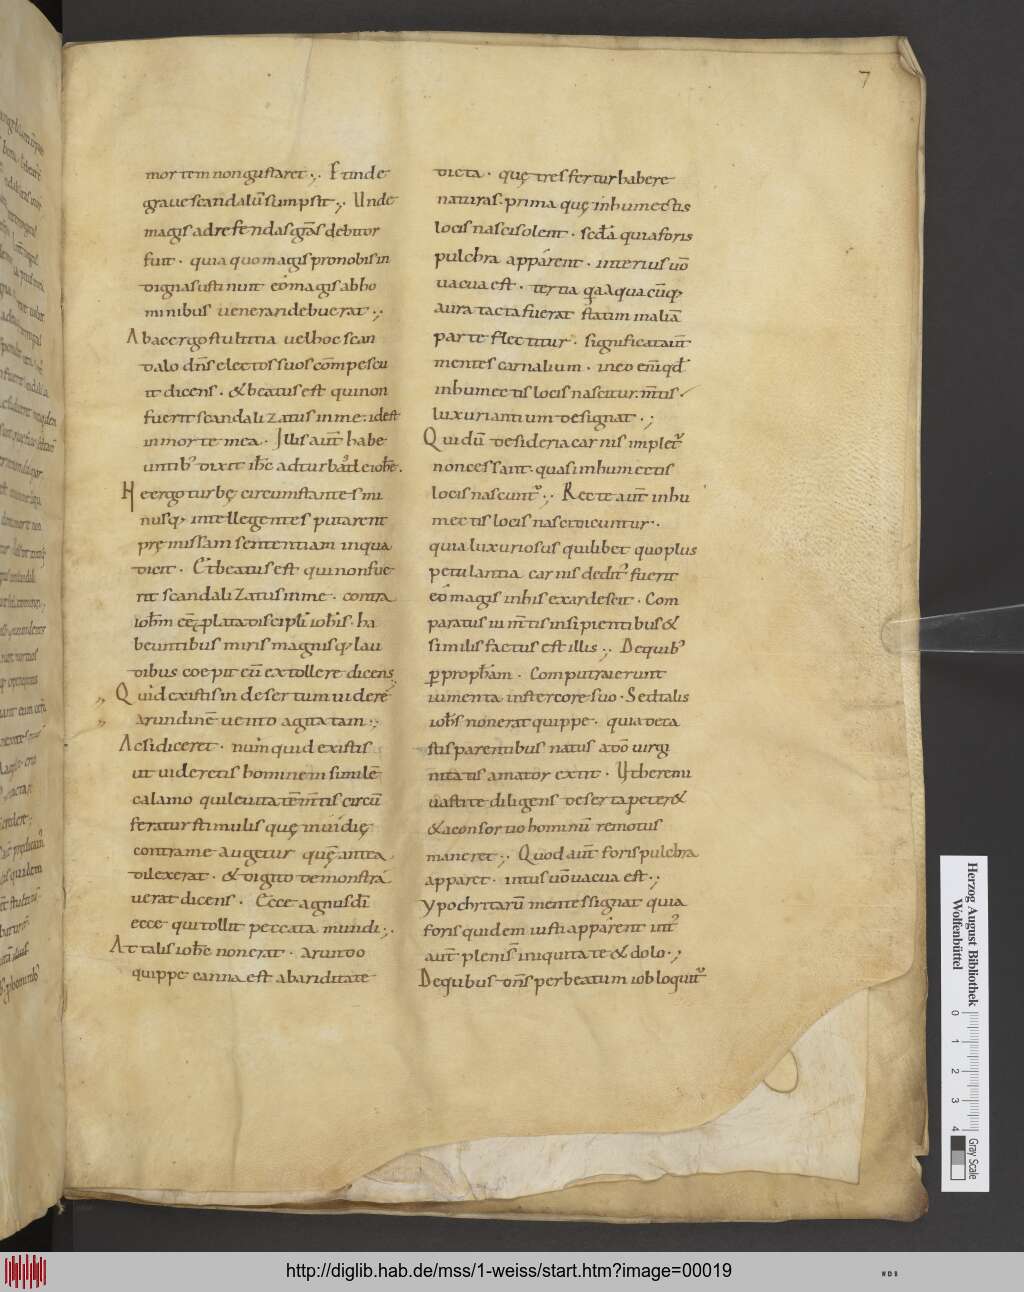 7
mortem non gustaret ·,· Et inde
graue scandalū sumpsit ·,· Unde
magis ad refendas grās debitor
fuit · quia quo magis pro nobis in
digna sustinuit eo magis ab ho
minibus uenerari debuerat ·,·
Ab ac ergo stultitia uel hoc scan
dalo dn̄s electos suos cōmpescu
it dicens · & beatus est qui non
fuerit scandalizatus in me · id est
in morte mea · Illis aut̄ habe
untib' dixit ihc̄ ad turbā de iohe ·
Hec ergo turbę circumstantes mi
nusq; intellegentes putarent
pręmissam sententiam in qua
dicit · Et beatus est qui non fue
rit scandalizatus in me · contra
ioh̄m
beuntibus miris magnisq; lau
dibus coepit eū extollere dicens
Quid existis in desertum uidere
arundinē uento agitatam ·,·
Ac si diceret · numquid existis
ut uideretis hominem similē
calamo qui leuitatē m̄tis circū
feratur stimulis quę inuidię
contra me augetur quē antea
dilexerat · & digito demonstra
uerat dicens · Ecce agnus dī
ecce qui tollit peccata mundi ·,·
At talis ioh̄e non erat · arundo
quippe canna est ab ariditate
dicta · quę tres fertur habere
naturas · prima quę in humectis
locis nasci solent · scdā quia foris
pulchra apparent · interius uō
uacua est · tertia qa a quacūq;
aura tacta fuerat statim in aliā
parte flectitur · significat aut̄
mentes carnalium · in eo enī qd̄
in humectis locis nascitur · m̄tis
luxuriantium designat · ;
Qui dū desideria carnis implet'
non cessant · quasi in humectis
locis nascunt' ·,· Recte aut̄ in hu
mectis locis nasci dicuntur ·
quia luxuriosus quilibet quo plus
petulantia carnis dedit' fuerit
eo magis in his exardescit · Com
paratus iumtis insipientibus &
similis factus est illis ·,· De quib'
p proph̄am · Computruerunt
iumenta in stercore suo · Sed talis
ioh̄s non erat quippe · quia de ca
stis parentibus natus a dō uirgi
nitatis amator extit · Et heremi
uastite diligens deserta peter&
& a consortio hominū remotus
maneret ·,· Quod aut̄ foris pulchra
apparet · intus uō uacua est ·,·
ypochritarū mentes signat quia
foris quidem iusti apparent int'
aut̄ plenis iniquitate & dolo · ;
De quibus dn̄s per beatum iob loquit'
Herzog August Bibliothek
Wolfenbüttel
0 1 2 3 4
Gray Scale
http://diglib.hab.de/mss/1-weiss/start.htm?image=00019